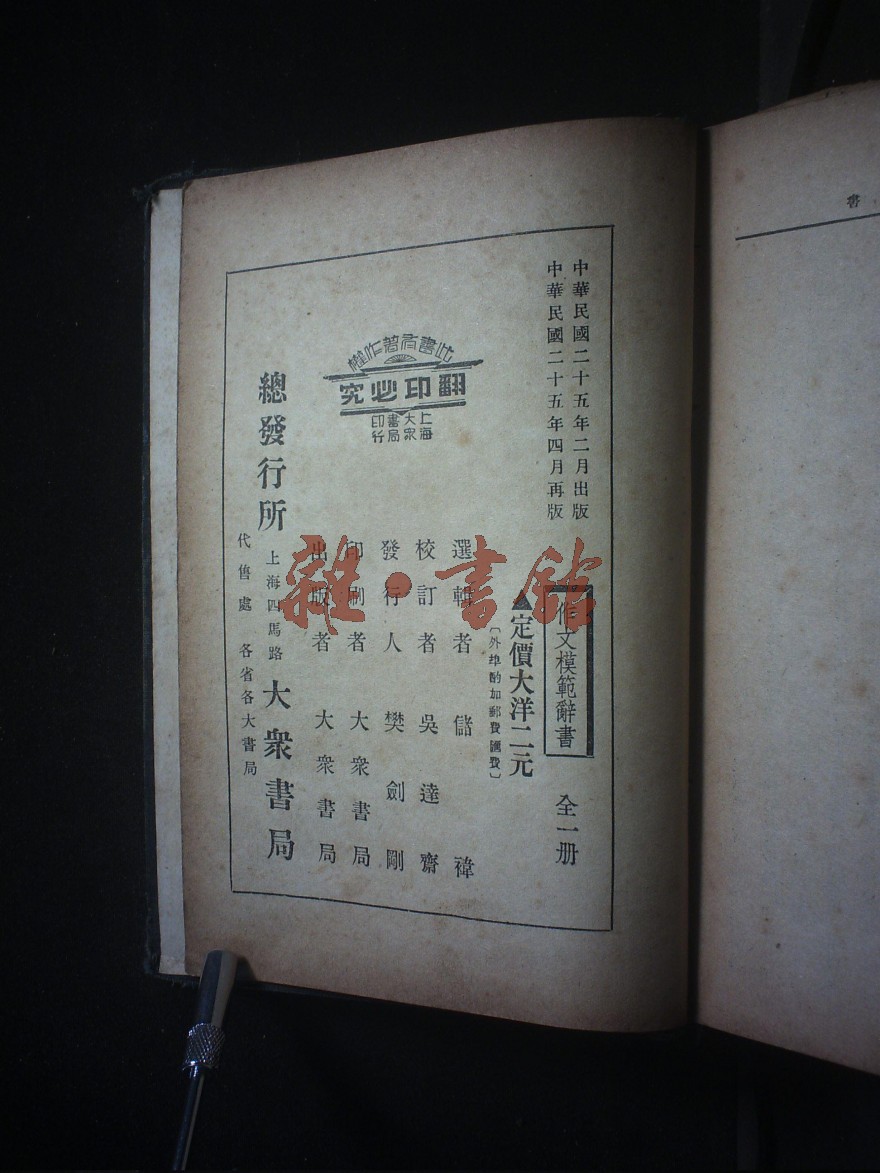 中華民國二十五年二月出版
中華民國二十五年四月再版
作文模範辭書 全一册
▲定價大洋二元
〔外埠酌加郵費匯費〕
選輯者 儲禕
校訂者 吳達齋
發行人 樊劍剛
印刷者 大衆書局
出版者 大衆書局
此書有著作權
翻印必究
上海
大衆
書局
印行
總發行所 上海四馬路 大衆書局
代售處 各省各大書局
書
雜·書館